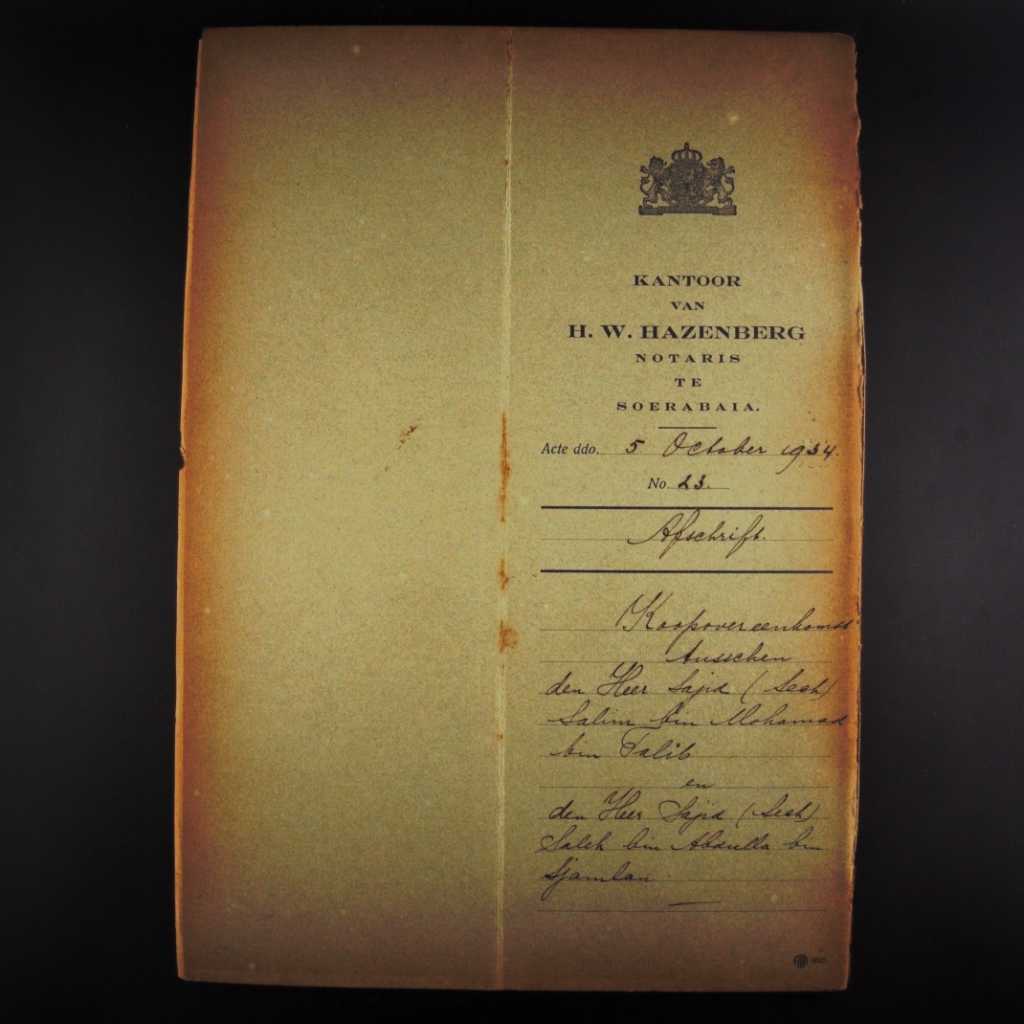 KANTOOR
VAN
H. W. HAZENBERG
NOTARIS
TE
SOERABAIA.
Acte ddo. 5 October 1934.
No. 23.
Afschrift.
Koopovereenkomst
tusschen
den Heer Sajid (Sech)
Salim bin Mohamad
bin Talib
en
den Heer Sajid (Sech)
Saleh bin Abdulla bin
Sjamlan